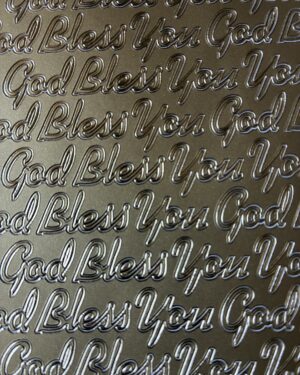 God Bless You God
God Bless You You
Bless You God
God Bless You
Bless You God
God Bless You
God Bless You God
God Bless You